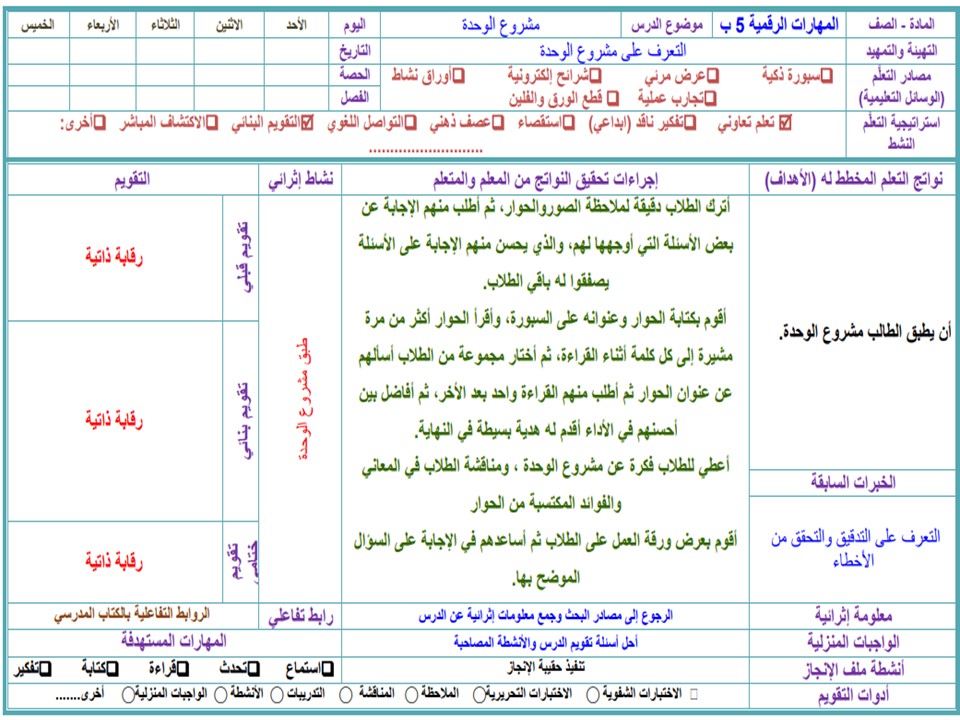 المادة - الصف المهارات الرقمية 5 ب موضوع الدرس مشروع الوحدة اليوم الأحد الاثنين الثلاثاء الأربعاء الخميس
التهيئة والتمهيد التعرف على مشروع الوحدة التاريخ
مصادر التعلّم سبورة ذكية عرض مرئي شرائح إلكترونية أوراق نشاط الحصة
(الوسائل التعليمية) تجارب عملية قطع الورق والفلين الفصل
استراتيجية التعلّم تعلم تعاوني تفكير ناقد (ابداعي) استقصاء عصف ذهني التواصل اللغوي التقويم البنائي الاكتشاف المباشر أخرى:
النشط ...........................
نواتج التعلم المخطط له (الأهداف) إجراءات تحقيق النواتج من المعلم والمتعلم نشاط إثرائي التقويم
أن يطبق الطالب مشروع الوحدة.
الخبرات السابقة
التعرف على التدقيق والتحقق من
الأخطاء
أترك الطلاب دقيقة لملاحظة الصوروالحوار، ثم أطلب منهم الإجابة عن
بعض الأسئلة التي أوجهها لهم، والذي يحسن منهم الإجابة على الأسئلة
يصفقوا له باقي الطلاب.
أقوم بكتابة الحوار وعنوانه على السبورة، وأقرأ الحوار أكثر من مرة
مشيرة إلى كل كلمة أثناء القراءة، ثم أختار مجموعة من الطلاب أسألهم
عن عنوان الحوار ثم أطلب منهم القراءة واحد بعد الأخر، ثم أفاضل بين
أحسنهم في الأداء أقدم له هدية بسيطة في النهاية.
أعطي للطلاب فكرة عن مشروع الوحدة ، ومناقشة الطلاب في المعاني
والفوائد المكتسبة من الحوار
أقوم بعرض ورقة العمل على الطلاب ثم أساعدهم في الإجابة على السؤال
الموضح بها.
طبق مشروع الوحدة
تقويم قبلي رقابة ذاتية
تقويم بنائي رقابة ذاتية
تقويم ختامي رقابة ذاتية
معلومة إثرائية الرجوع إلى مصادر البحث وجمع معلومات إثرائية عن الدرس رابط تفاعلي الروابط التفاعلية بالكتاب المدرسي
الواجبات المنزلية أحل أسئلة تقويم الدرس والأنشطة المصاحبة المهارات المستهدفة
أنشطة ملف الإنجاز تنفيذ حقيبة الإنجاز استماع تحدث قراءة كتابة تفكير
أدوات التقويم الاختبارات الشفوية الاختبارات التحريرية الملاحظة المناقشة التدريبات الأنشطة الواجبات المنزلية أخرى.......